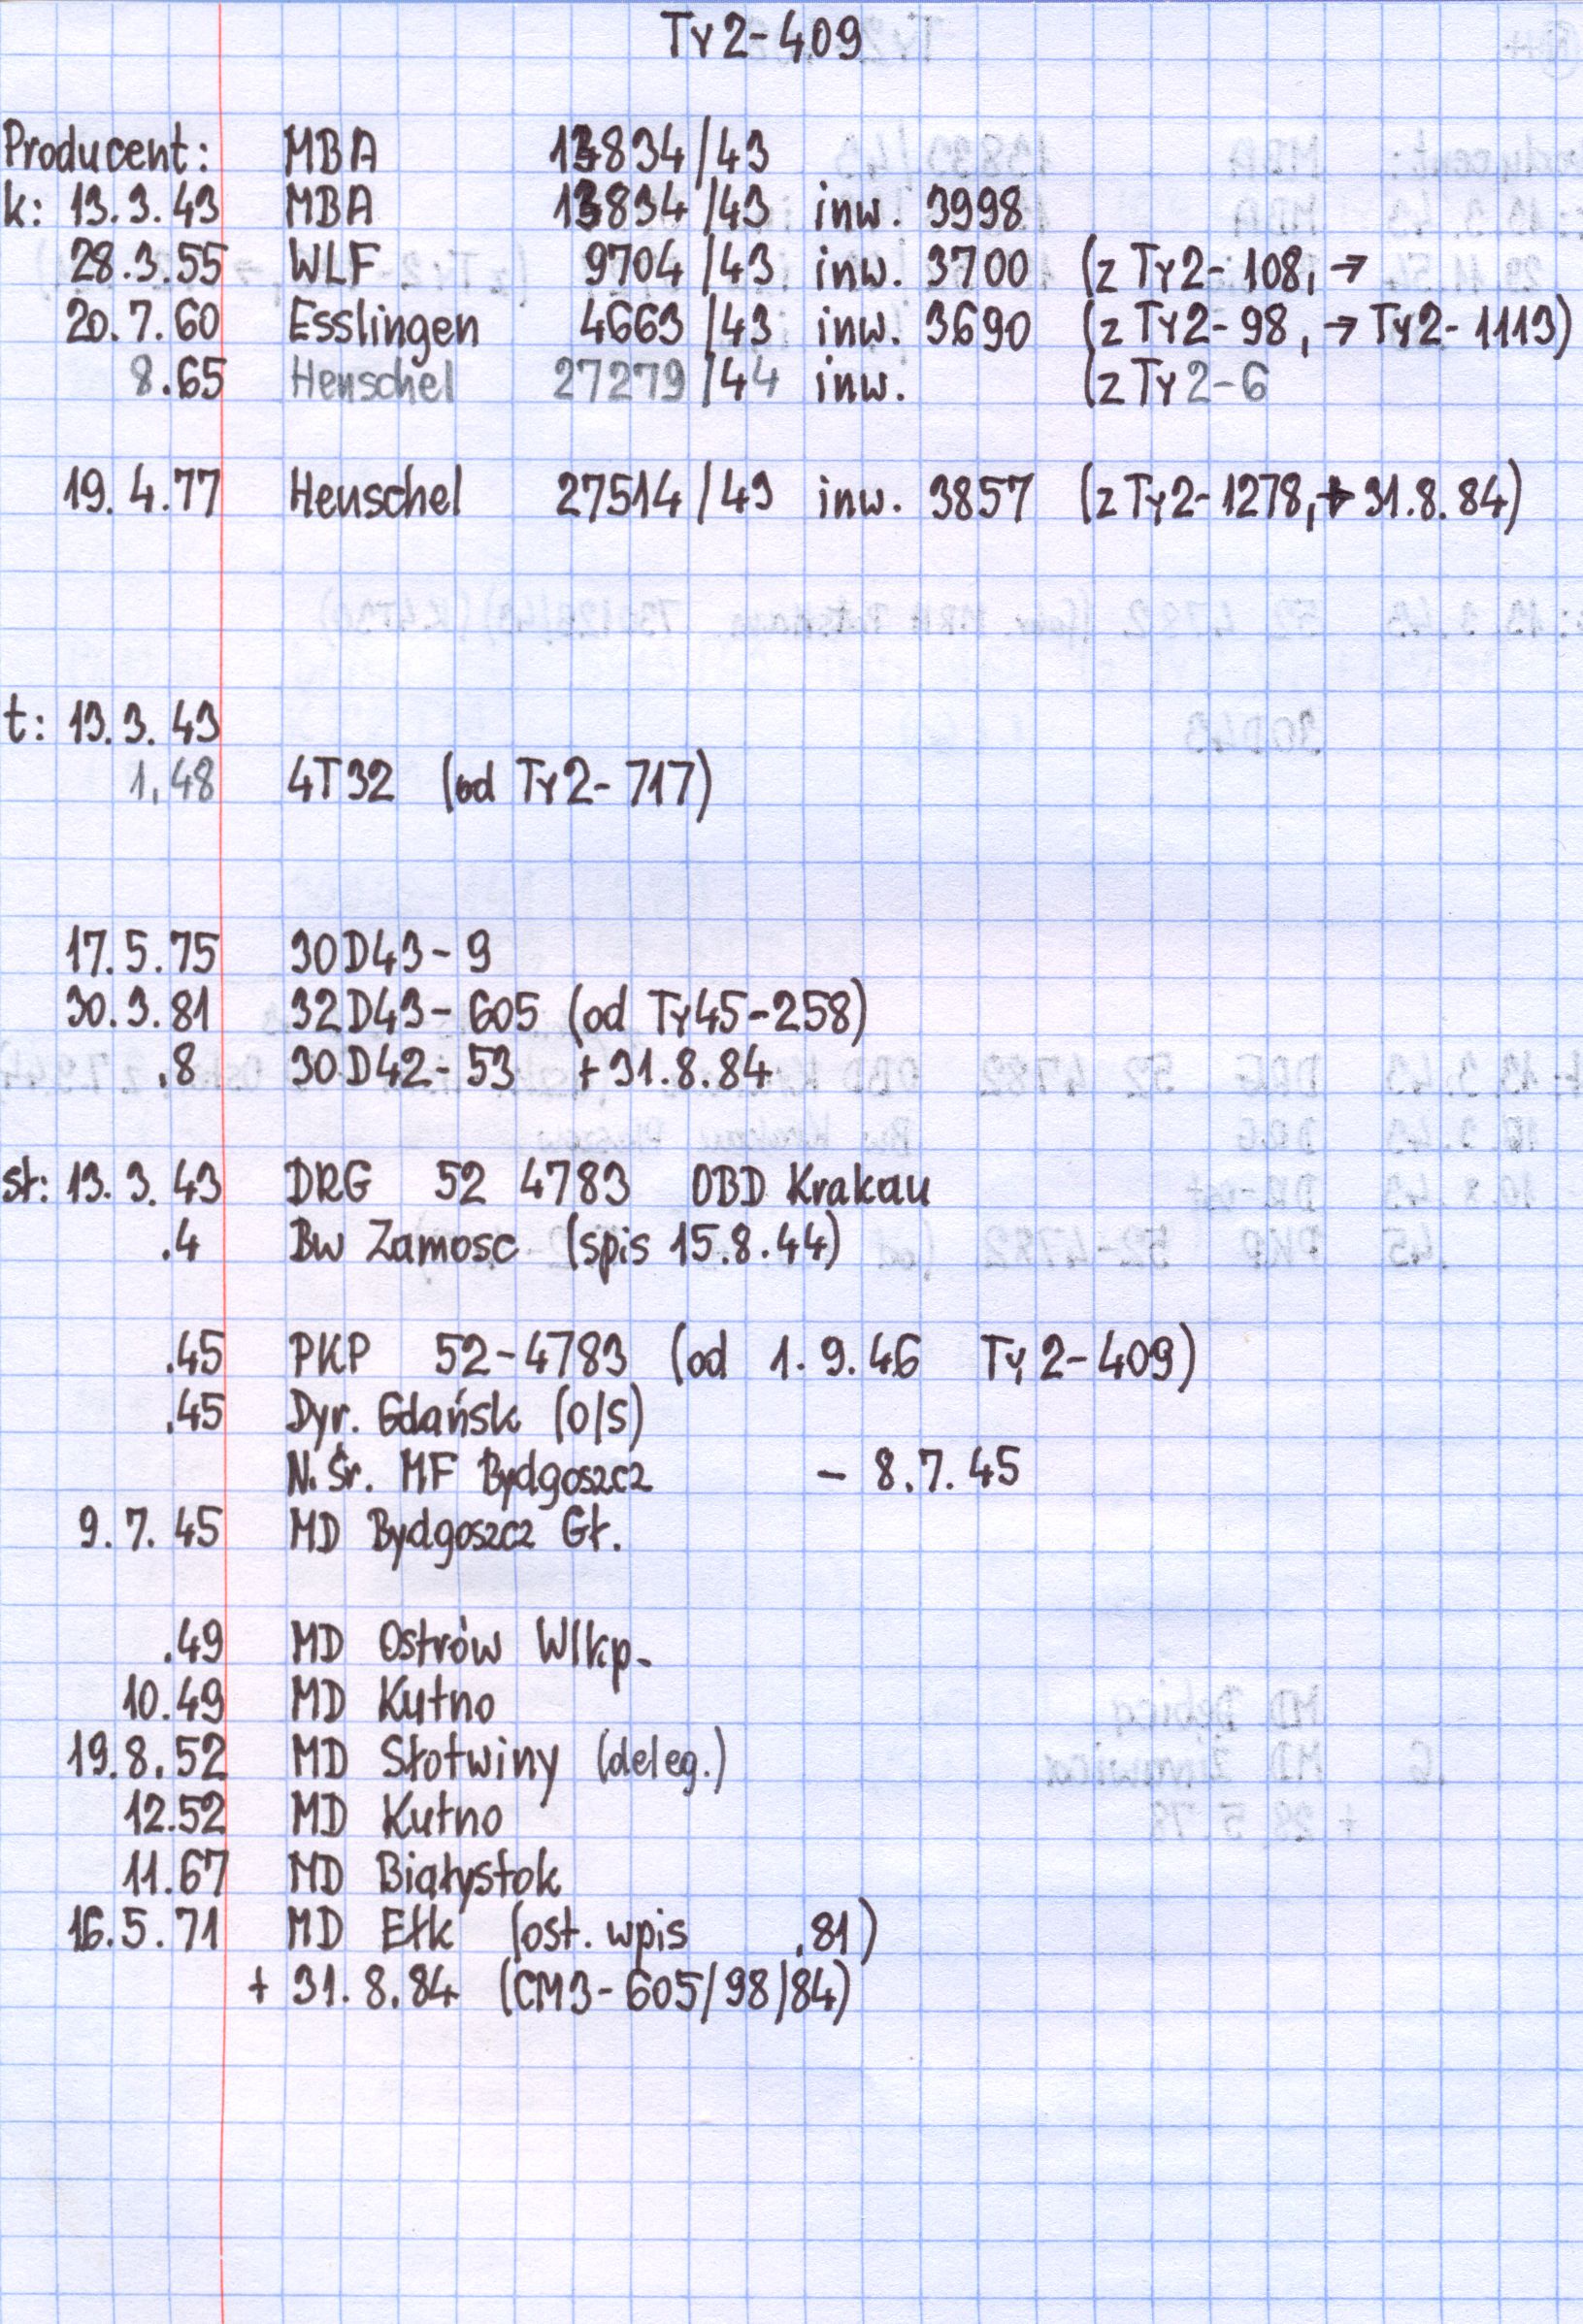 Ty2-409
Producent: MBA 13834/43
k: 13.3.43 MBA 13834/43 inw. 3998
28.3.55 WLF 9704/43 inw. 3700 (z Ty2-108, →
20.7.60 Esslingen 4663/43 inw. 3690 (z Ty2-98, → Ty2-1113)
8.65 Henschel 27279/44 inw. (z Ty2-6
19.4.77 Henschel 27514/43 inw. 3857 (z Ty2-1278, + 31.8.84)
t: 13.3.43
1,48 4T32 (od Ty2-717)
17.5.75 30D43-9
30.3.81 32D43-605 (od Ty45-258)
.8 30D42-53 +31.8.84
st: 13.3.43 DRG 52 4783 OBD Krakau
.4 Bw Zamosc (spis 15.8.44)
.45 PKP 52-4783 (od 1.9.46 Ty2-409)
.45 Dyr. Gdańsk (O/S)
N.Śr. MF Bydgoszcz - 8.7.45
9.7.45 MD Bydgoszcz Gł.
.49 MD Ostrów Wlkp.
10.49 MD Kutno
19.8.52 MD Słotwiny (deleg.)
12.52 MD Kutno
11.67 MD Białystok
16.5.71 MD Ełk (ost. wpis .81)
+ 31.8.84 (CM3-605/98/84)